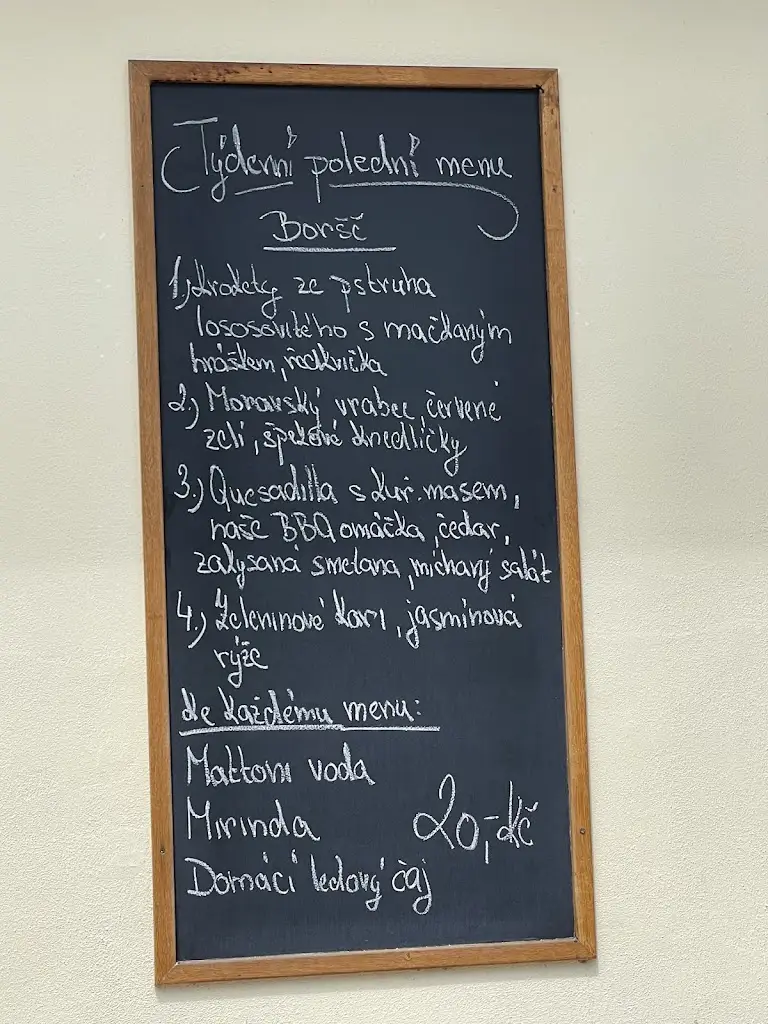 Týdenní polední menu
Boršč
1.) Krokety ze pstruha
lososovitého s mačkaným
hráškem, ředkvička
2.) Moravský vrabec, červené
zelí, špekové knedlíčky
3.) Quesadilla s kuř. masem,
naše BBQ omáčka, čedar,
zakysaná smetana, míchaný salát
4.) Zeleninové kari, jasmínová
rýže
Ke každému menu:
Mattoni voda
Mirinda 20,-Kč
Domácí ledový čaj